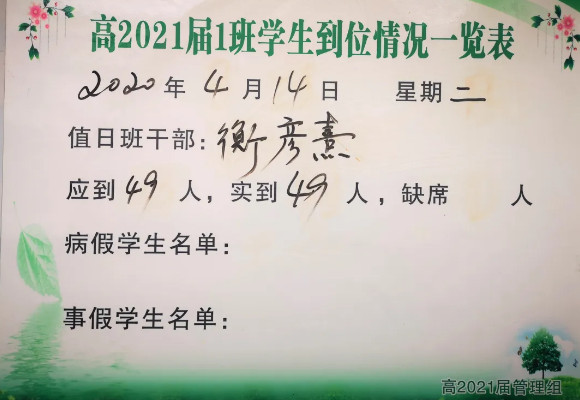 高2021届1班学生到位情况一览表
2020年4月14日 星期二
值日班干部：衡彦熹
应到49人，实到49人，缺席 人
病假学生名单：
事假学生名单：
高2021届管理组